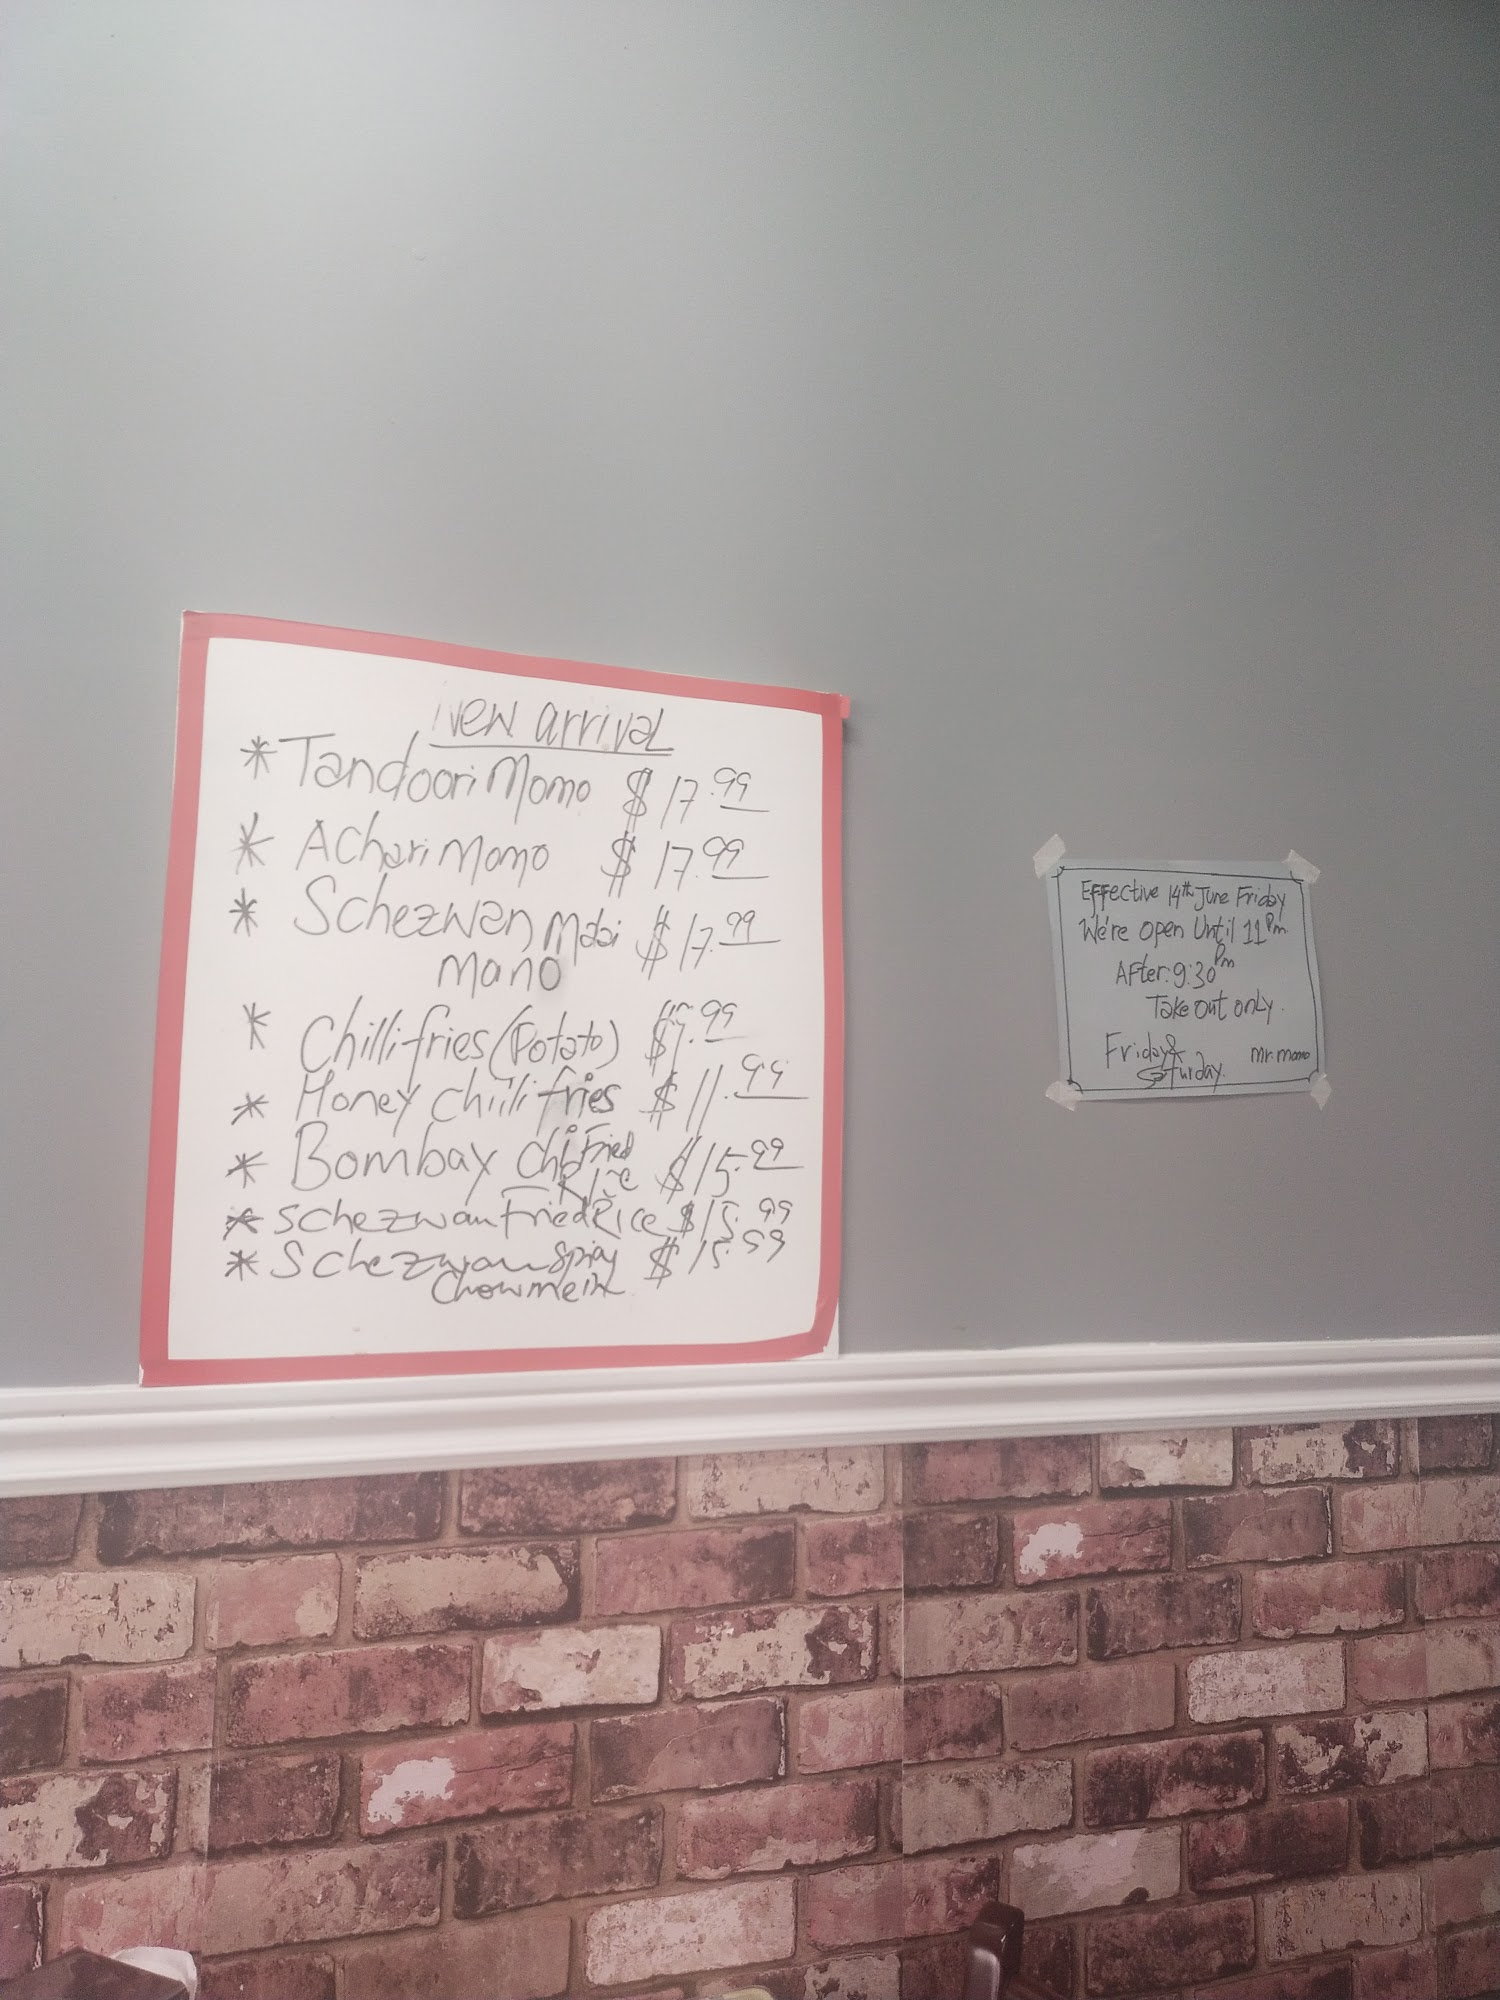 New arrival
* Tandoori Momo $17.99
* Achari Momo $17.99
* Schezwan Malai $17.99
Mano
* Chilli fries (Potato) $9.99
* Honey chiili fries $11.99
* Bombay Fried $15.99
Rice
* Schezwan Fried Rice $15.99
* Schezwan Spicy $15.99
Chowmein
Effective 14th June Friday
We're open Until 11 Pm
After: 9:30 Pm
Take out only.
Friday &
Saturday.
Mr. momo